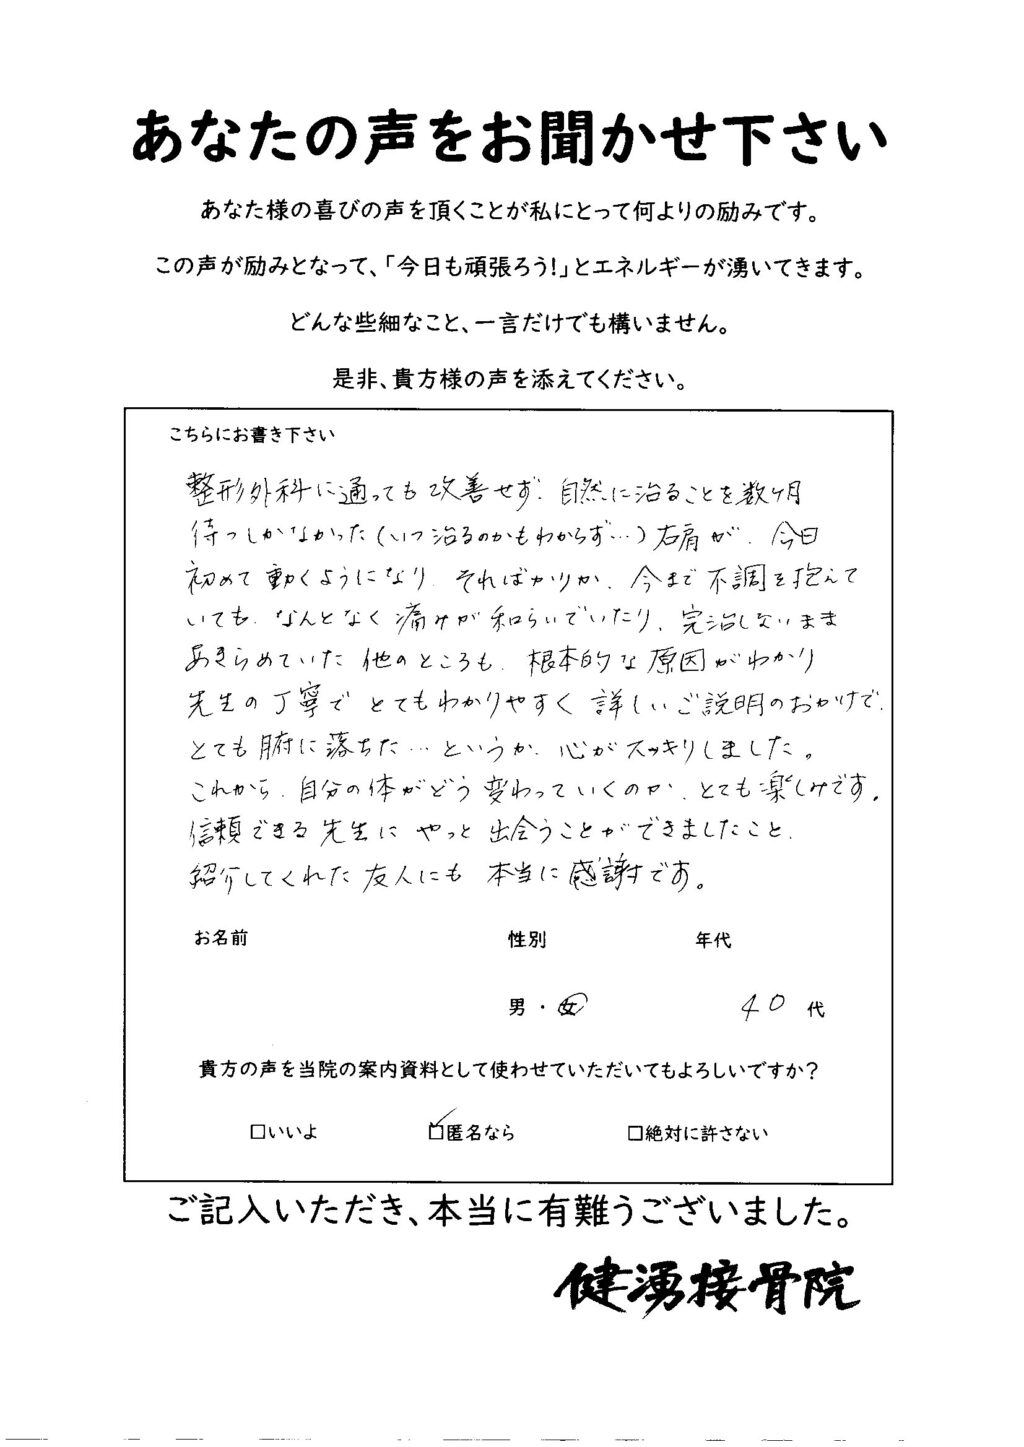 あなたの声をお聞かせ下さい
あなた様の喜びの声を頂くことが私にとって何よりの励みです。
この声が励みとなって、「今日も頑張ろう!」とエネルギーが湧いてきます。
どんな些細なこと、一言だけでも構いません。
是非、貴方様の声を添えてください。
こちらにお書き下さい
整形外科に通っても改善せず、自然に治ることを数ヶ月
待つしかなかった(いつ治るのかもわからず…)右肩が、今日
初めて動くようになり、そればかりか、今まで不調を抱えて
いても、なんとなく痛みが和らいでいたり、完治しないまま
あきらめていた他のところも、根本的な原因がわかり
先生の丁寧でとてもわかりやすく詳しいご説明のおかげで、
とても腑に落ちた…というか、心がスッキリしました。
これから、自分の体がどう変わっていくのか、とても楽しみです。
信頼できる先生にやっと出会うことができましたこと、
紹介してくれた友人にも本当に感謝です。
お名前 性別 年代
男・女 40代
貴方の声を当院の案内資料として使わせていただいてもよろしいですか?
□いいよ ☑匿名なら □絶対に許さない
ご記入いただき、本当に有難うございました。
健湧接骨院